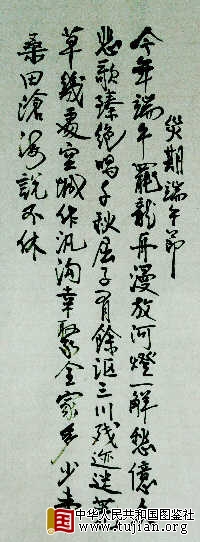 災期端午節
今年端午罷龍舟漫放河燈一解愁億
悲歌臻絶唱千秋屈子有餘謳三川残迹迷
草綫處空城作汎溝幸聚全家
少
桑田滄海說不休
中华人民共和国图鉴社
www.tujian.org